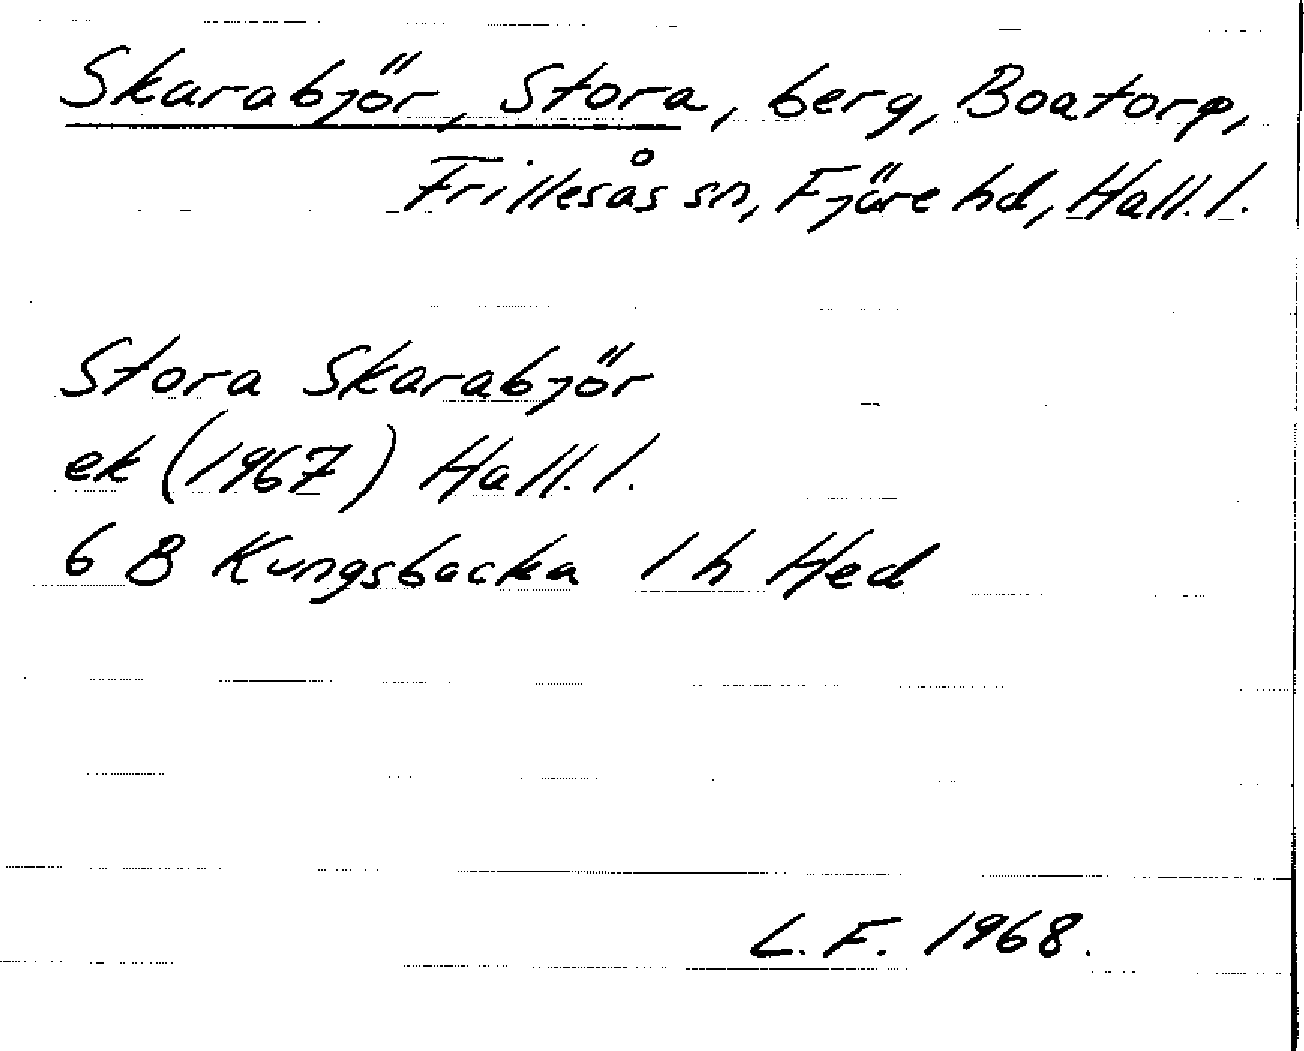 Skarabjör, Stora, berg, Boatorp,
Frillesås sn, Fjäre hd, Hall. l.
Stora Skarabjör
ek (1967) Hall. l.
6 B Kungsbacka 1 h Hed
L. F. 1968.